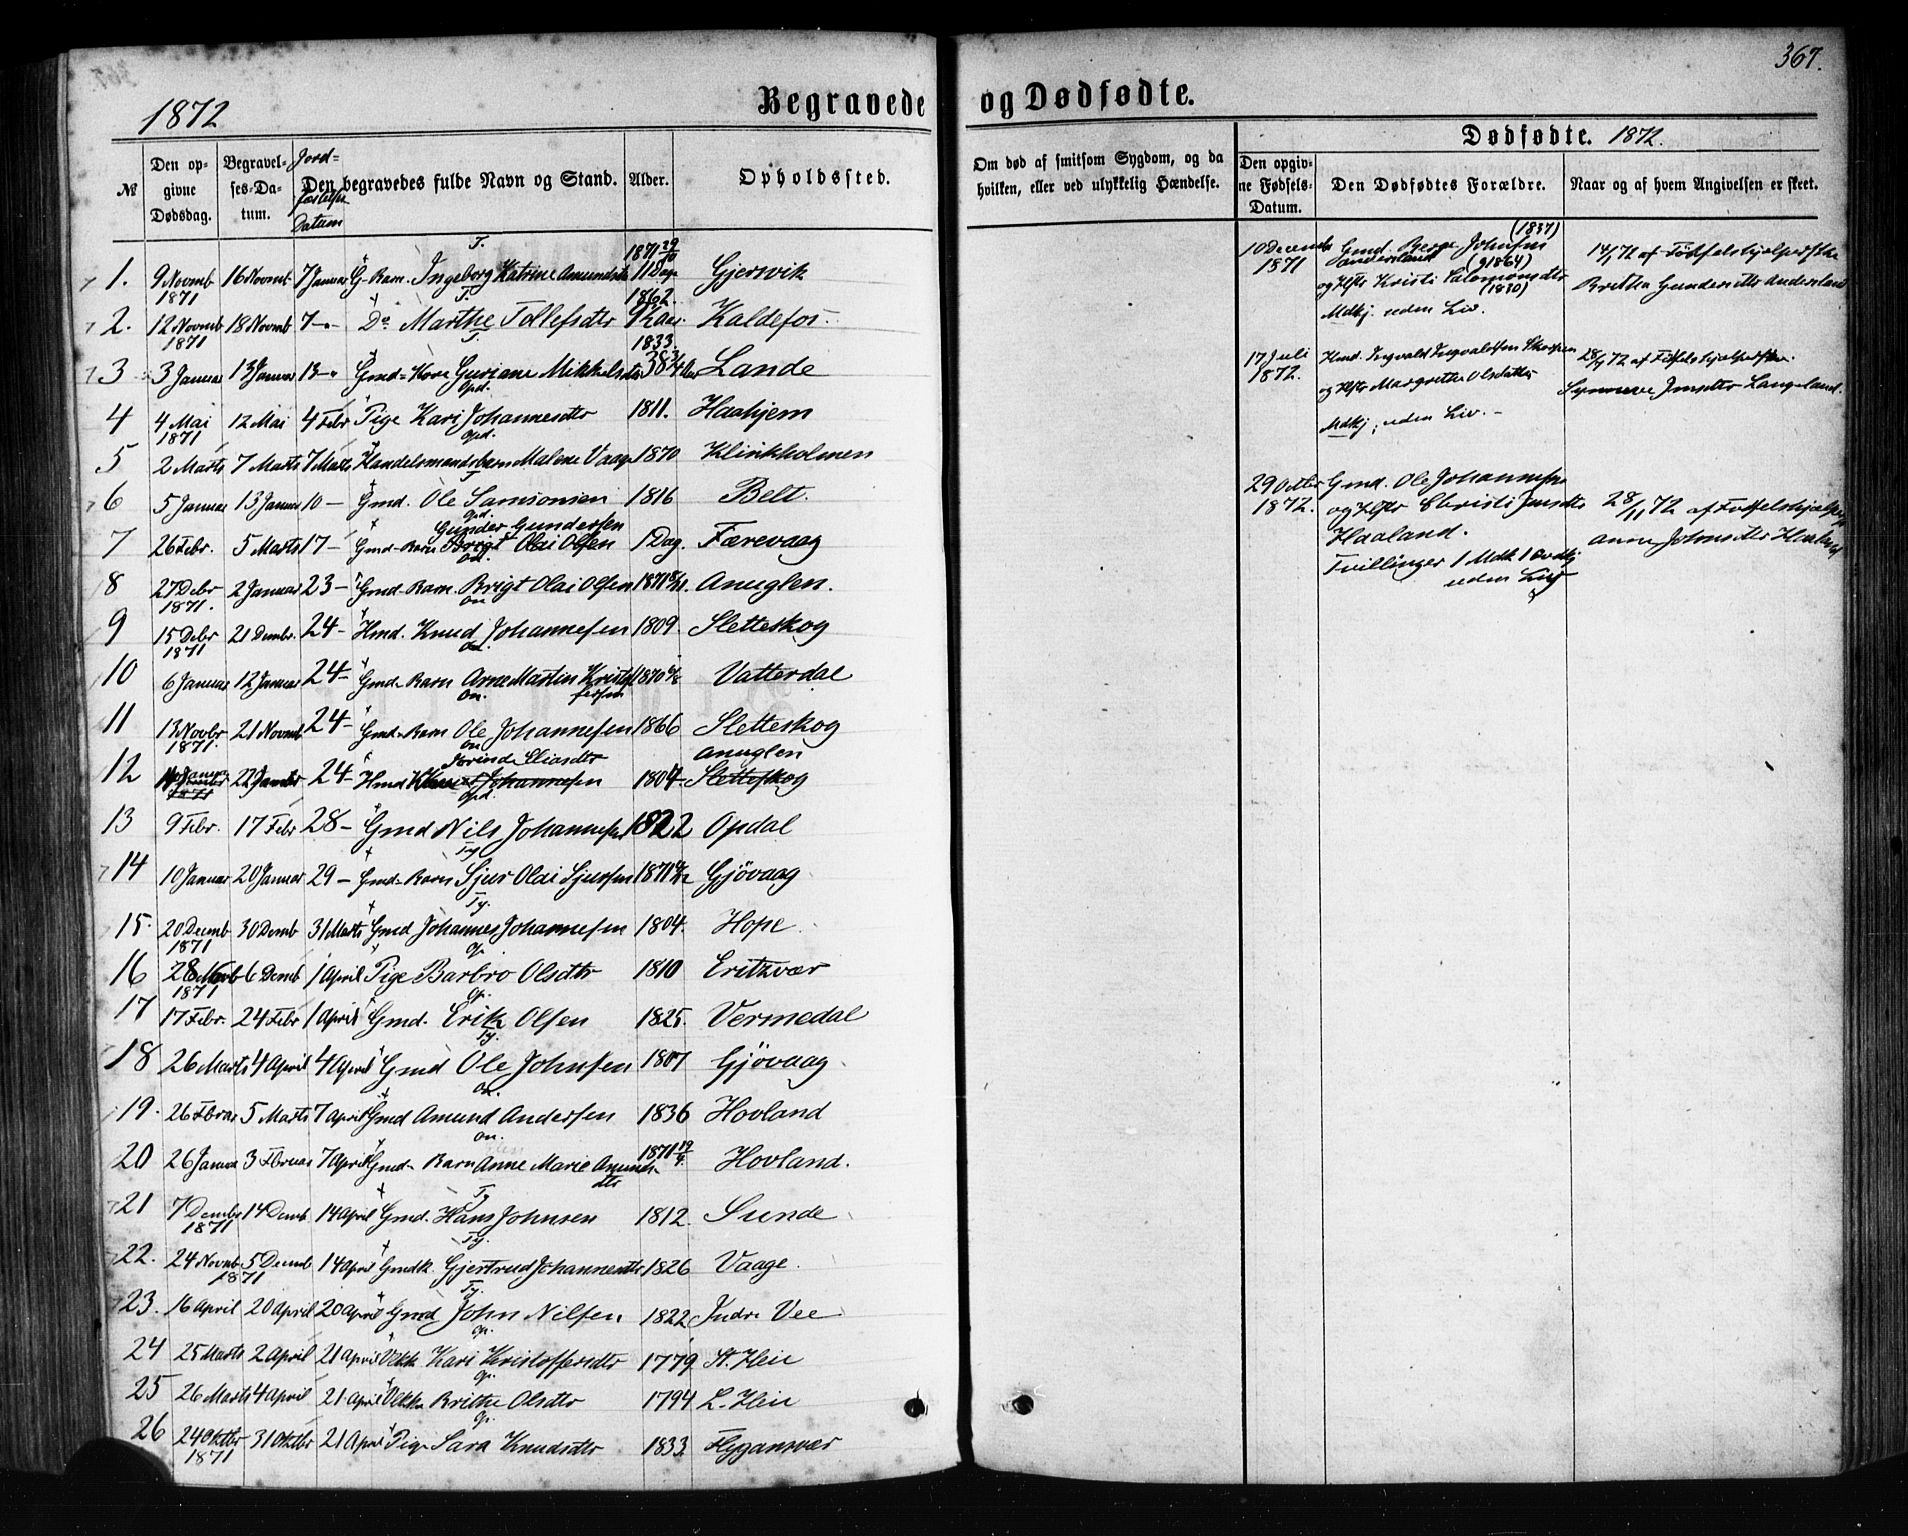 367.
1872
Begravede og Dødfødte.
Dødfødte. 1872.
№
Den opgivne Dødsdag.
Begravelses-Datum.
Jordfæstelse Datum
Den begravedes fulde Navn og Stand.
Alder.
Opholdssted.
Om død af smitsom Sygdom, og da hvilken, eller ved ulykkelig Hændelse.
Den opgivne Fødsels-Datum.
Den Dødfødtes Forældre.
Naar og af hvem Angivelsen er skeet.
1. 9 Novmb 1871 16 Novmb 7 Januar G-Barn Ingeborg Katrine Amundsdtr 1871 29/10 11 Dage Gjersvik
2. 12 Novmb 1871 18 Novmb 7 -"- Do Marthe Tollefsdtr 1862. 9 Kaldefos
3 3 Januar 13 Januar 13 -"- Gmd-Kone Guriane Mikkelsdtr 1833. 38 3/4 Lande
4 4 Mai 1871 12 Mai 4 Febr Pige Kari Johannesdtr 1811. Haahjem
5 2 Marts 7 Marts 7 Marts Handelsmandsbarn Malene Vaage 1870 Klinkholmen
6 5 Januar 13 Januar 10 - Gmd. Ole Samsonsen 1816 Belt.
7 26 Febr. 5 Marts 17 - Gmd-Barn Gunder Gundersen Brigt Olai Olsen 1 Dag. Færevaag
8 27 Debr 1871. 2 Januar 23 - Gmd-Barn Brigt Olai Olsen 1871 Anuglen.
9 15 Debr 1871 21 Dembr. 24 - Hmd. Knud Johannesen 1809. Sletteskog
10 6 Januar 12 Januar 24 - Gmd-Barn Arne Martin Kristoffersen 1870 Vatterdal
11 13 Novbr 1871. 21 Novmb 24 - Gmd-Barn Ole Johannesen 1866 Sletteskog
12 22 Januar 24 - Hmd K Sirinde Eliasdtr Knud Johannesen 1804 Anuglen Sletteskog
13 9 Febr. 17 Febr 28 - Gmd Nils Johannesen 1822 Opdal
14 10 Januar 20 Januar 29 - Gmd-Barn Sjur Olai Sjursen 1871 Gjøvaag
15. 20 Decemb 1871 30 Demb 31 Marts Gmd Johannes Johannesen 1804. Hope
16 28 Novb 1871 6 Demb 1 April Pige Barbro Olsdtr 1810 Eritzvær
17 17 Febr. 24 Febr 1 April Gmd. Erik Olsen 1825. Vermedal
18 26 Marts 4 April 4 April Gmd Ole Johnsen 1807 Gjøvaag
19. 26 Fbruar 5 Marts 7 April Gmd Amund Andersen 1836 Hovland
20 26 Januar 3 Februar 7 April Gmd-Barn Anne Marie Amundsdtr 1871 19/4 Hovland.
21 7 Dembr 1871 14 Demb 14 April Gmd. Hans Johnsen 1812. Sunde
22. 24 Novmb 1871 5 Decmb 14 April Gmdk. Gjertrud Johannesdtr 1826 Vaage.
23. 16 April 20 April 20 April Gmd John Nilsen 1822 Indre Vee
24 25 Marts 2 April 21 April Kari Kristoffersdtr 1779 St. Heie
25 26 Marts 4 April 21 April Brithe Olsdtr 1794 L. Heie
26 24 Oktbr 1871 31 Oktbr 21 April Pige Sara Knudsdtr 1833 Flygansvær
10 Decembr 1871 Gmd. Berge Johnsen (1837) Andersland (91864) og Hstr Kristi Salomonsdtr (1830) Mdkj. uden Liv. 14/1 72 af Fødselshjælperske Britha Gundersdtr Andersland
17 Juli 1872. Hmd. Ingvald Ingvaldsen Skorpen og Hstr Margrethe Olsdatter Mdkj. uden Liv. - 28/7 72 af Fødselshjælperske. Synneve Jensdtr Langeland.
29 Octbr 1872. Gmd. Ole Johannesen og Hstr Christi Jensdtr Haaland. Tvillinger 1 Mdk 1 Qvdkj uden Liv 28/11 72 af Fødselshjælperske Anna Johnsdtr Haaland